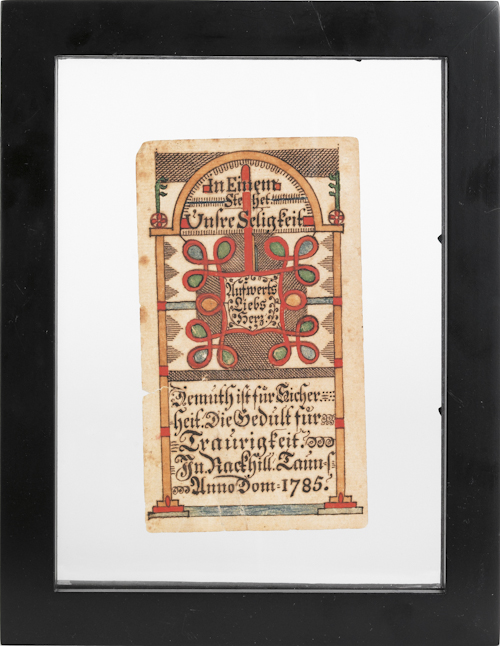 In Einem
Stehet
Unsre Seligkeit
Aufwerts
Liebs
Herz
Demuth ist für Sicher=
heit. Die Gedult für
Traurigkeit.
In Rackhill. Taun=
Anno Dom = 1785.